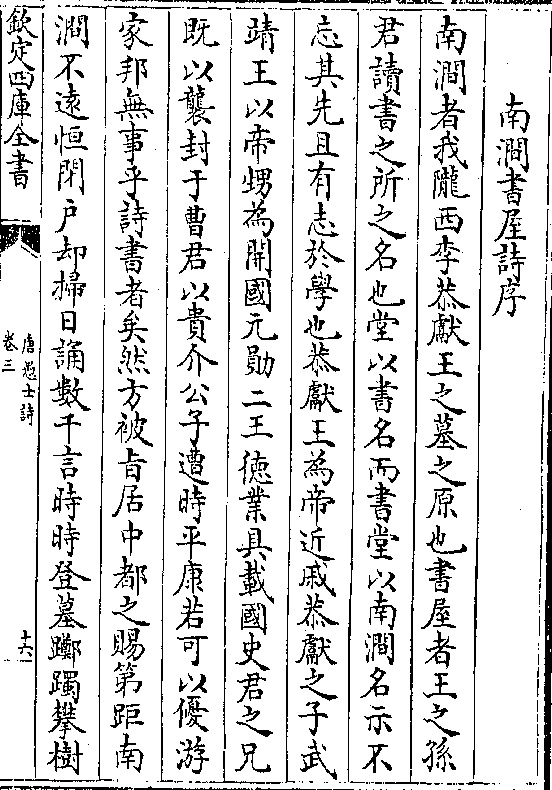 南澗書屋詩序
南澗者我隴西李恭獻王之墓之原也書屋者王之孫
君讀書之所之名也堂以書名而書堂以南澗名示不
忘其先且有志於學也恭獻王為帝近戚恭獻之子武
靖王以帝甥為開國元勛二王徳業具載國史君之兄
既以襲封于曹君以貴介公子遭時平康若可以優游
家邦無事乎詩書者矣然方被㫖居中都之賜第距南
澗不逺恒閉户却掃日誦數千言時時登墓躑躅攀樹
欽定四庫全書
唐愚士詩
卷三
十六